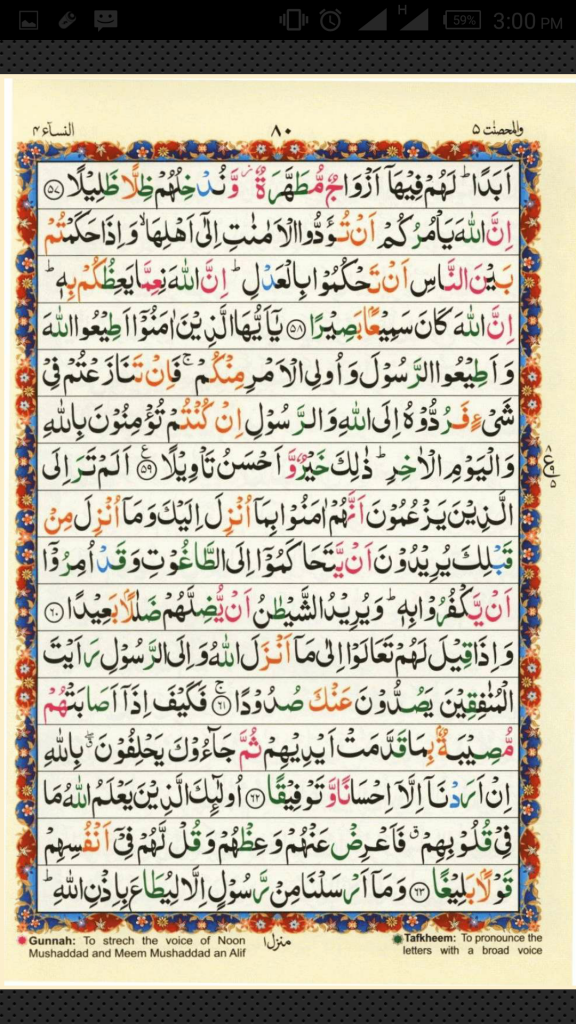 59% 3:00 PM
H
النساۤء ٤
٨٠
والمحصنٰت ٥
اَبَدًا ؕ لَهُمْ فِيْهَاۤ اَزْوَاجٌ مُّطَهَّرَةٌ ۙ وَّ نُدْخِلُهُمْ ظِلًّا ظَلِيْلًا ﴿۵۷﴾
اِنَّ اللّٰهَ يَاْمُرُكُمْ اَنْ تُؤَدُّوا الْاَمٰنٰتِ اِلٰۤى اَهْلِهَا ۙ وَاِذَا حَكَمْتُمْ
بَيْنَ النَّاسِ اَنْ تَحْكُمُوْا بِالْعَدْلِ ؕ اِنَّ اللّٰهَ نِعِمَّا يَعِظُكُمْ بِهٖ ؕ
اِنَّ اللّٰهَ كَانَ سَمِيْعًۢا بَصِيْرًا ﴿۵۸﴾ يٰۤاَيُّهَا الَّذِيْنَ اٰمَنُوْۤا اَطِيْعُوا اللّٰهَ
وَاَطِيْعُوا الرَّسُوْلَ وَاُولِى الْاَمْرِ مِنْكُمْ ۚ فَاِنْ تَنَازَعْتُمْ فِيْ
شَىْءٍ فَرُدُّوْهُ اِلَى اللّٰهِ وَالرَّسُوْلِ اِنْ كُنْتُمْ تُؤْمِنُوْنَ بِاللّٰهِ
وَالْيَوْمِ الْاٰخِرِ ؕ ذٰلِكَ خَيْرٌ وَّ اَحْسَنُ تَاْوِيْلًا ﴿۵۹﴾ اَلَمْ تَرَ اِلَى
الَّذِيْنَ يَزْعُمُوْنَ اَنَّهُمْ اٰمَنُوْا بِمَاۤ اُنْزِلَ اِلَيْكَ وَمَاۤ اُنْزِلَ مِنْ
قَبْلِكَ يُرِيْدُوْنَ اَنْ يَّتَحَاكَمُوْۤا اِلَى الطَّاغُوْتِ وَقَدْ اُمِرُوْۤا
اَنْ يَّكْفُرُوْا بِهٖ ؕ وَيُرِيْدُ الشَّيْطٰنُ اَنْ يُّضِلَّهُمْ ضَلٰلًۢا بَعِيْدًا ﴿۶۰﴾
وَاِذَا قِيْلَ لَهُمْ تَعَالَوْا اِلٰى مَاۤ اَنْزَلَ اللّٰهُ وَاِلَى الرَّسُوْلِ رَاَيْتَ
الْمُنٰفِقِيْنَ يَصُدُّوْنَ عَنْكَ صُدُوْدًا ﴿۶۱﴾ فَكَيْفَ اِذَاۤ اَصَابَتْهُمْ
مُّصِيْبَةٌۢ بِمَا قَدَّمَتْ اَيْدِيْهِمْ ثُمَّ جَآءُوْكَ يَحْلِفُوْنَ ۖ بِاللّٰهِ
اِنْ اَرَدْنَاۤ اِلَّاۤ اِحْسَانًا وَّ تَوْفِيْقًا ﴿۶۲﴾ اُولٰٓئِكَ الَّذِيْنَ يَعْلَمُ اللّٰهُ مَا
فِيْ قُلُوْبِهِمْ ۗ فَاَعْرِضْ عَنْهُمْ وَعِظْهُمْ وَقُلْ لَّهُمْ فِيْۤ اَنْفُسِهِمْ
قَوْلًۢا بَلِيْغًا ﴿۶۳﴾ وَمَاۤ اَرْسَلْنَا مِنْ رَّسُوْلٍ اِلَّا لِيُطَاعَ بِاِذْنِ اللّٰهِ ؕ
Gunnah: To strech the voice of Noon
Mushaddad and Meem Mushaddad an Alif
منزل١
Tafkheem: To pronounce the
letters with a broad voice